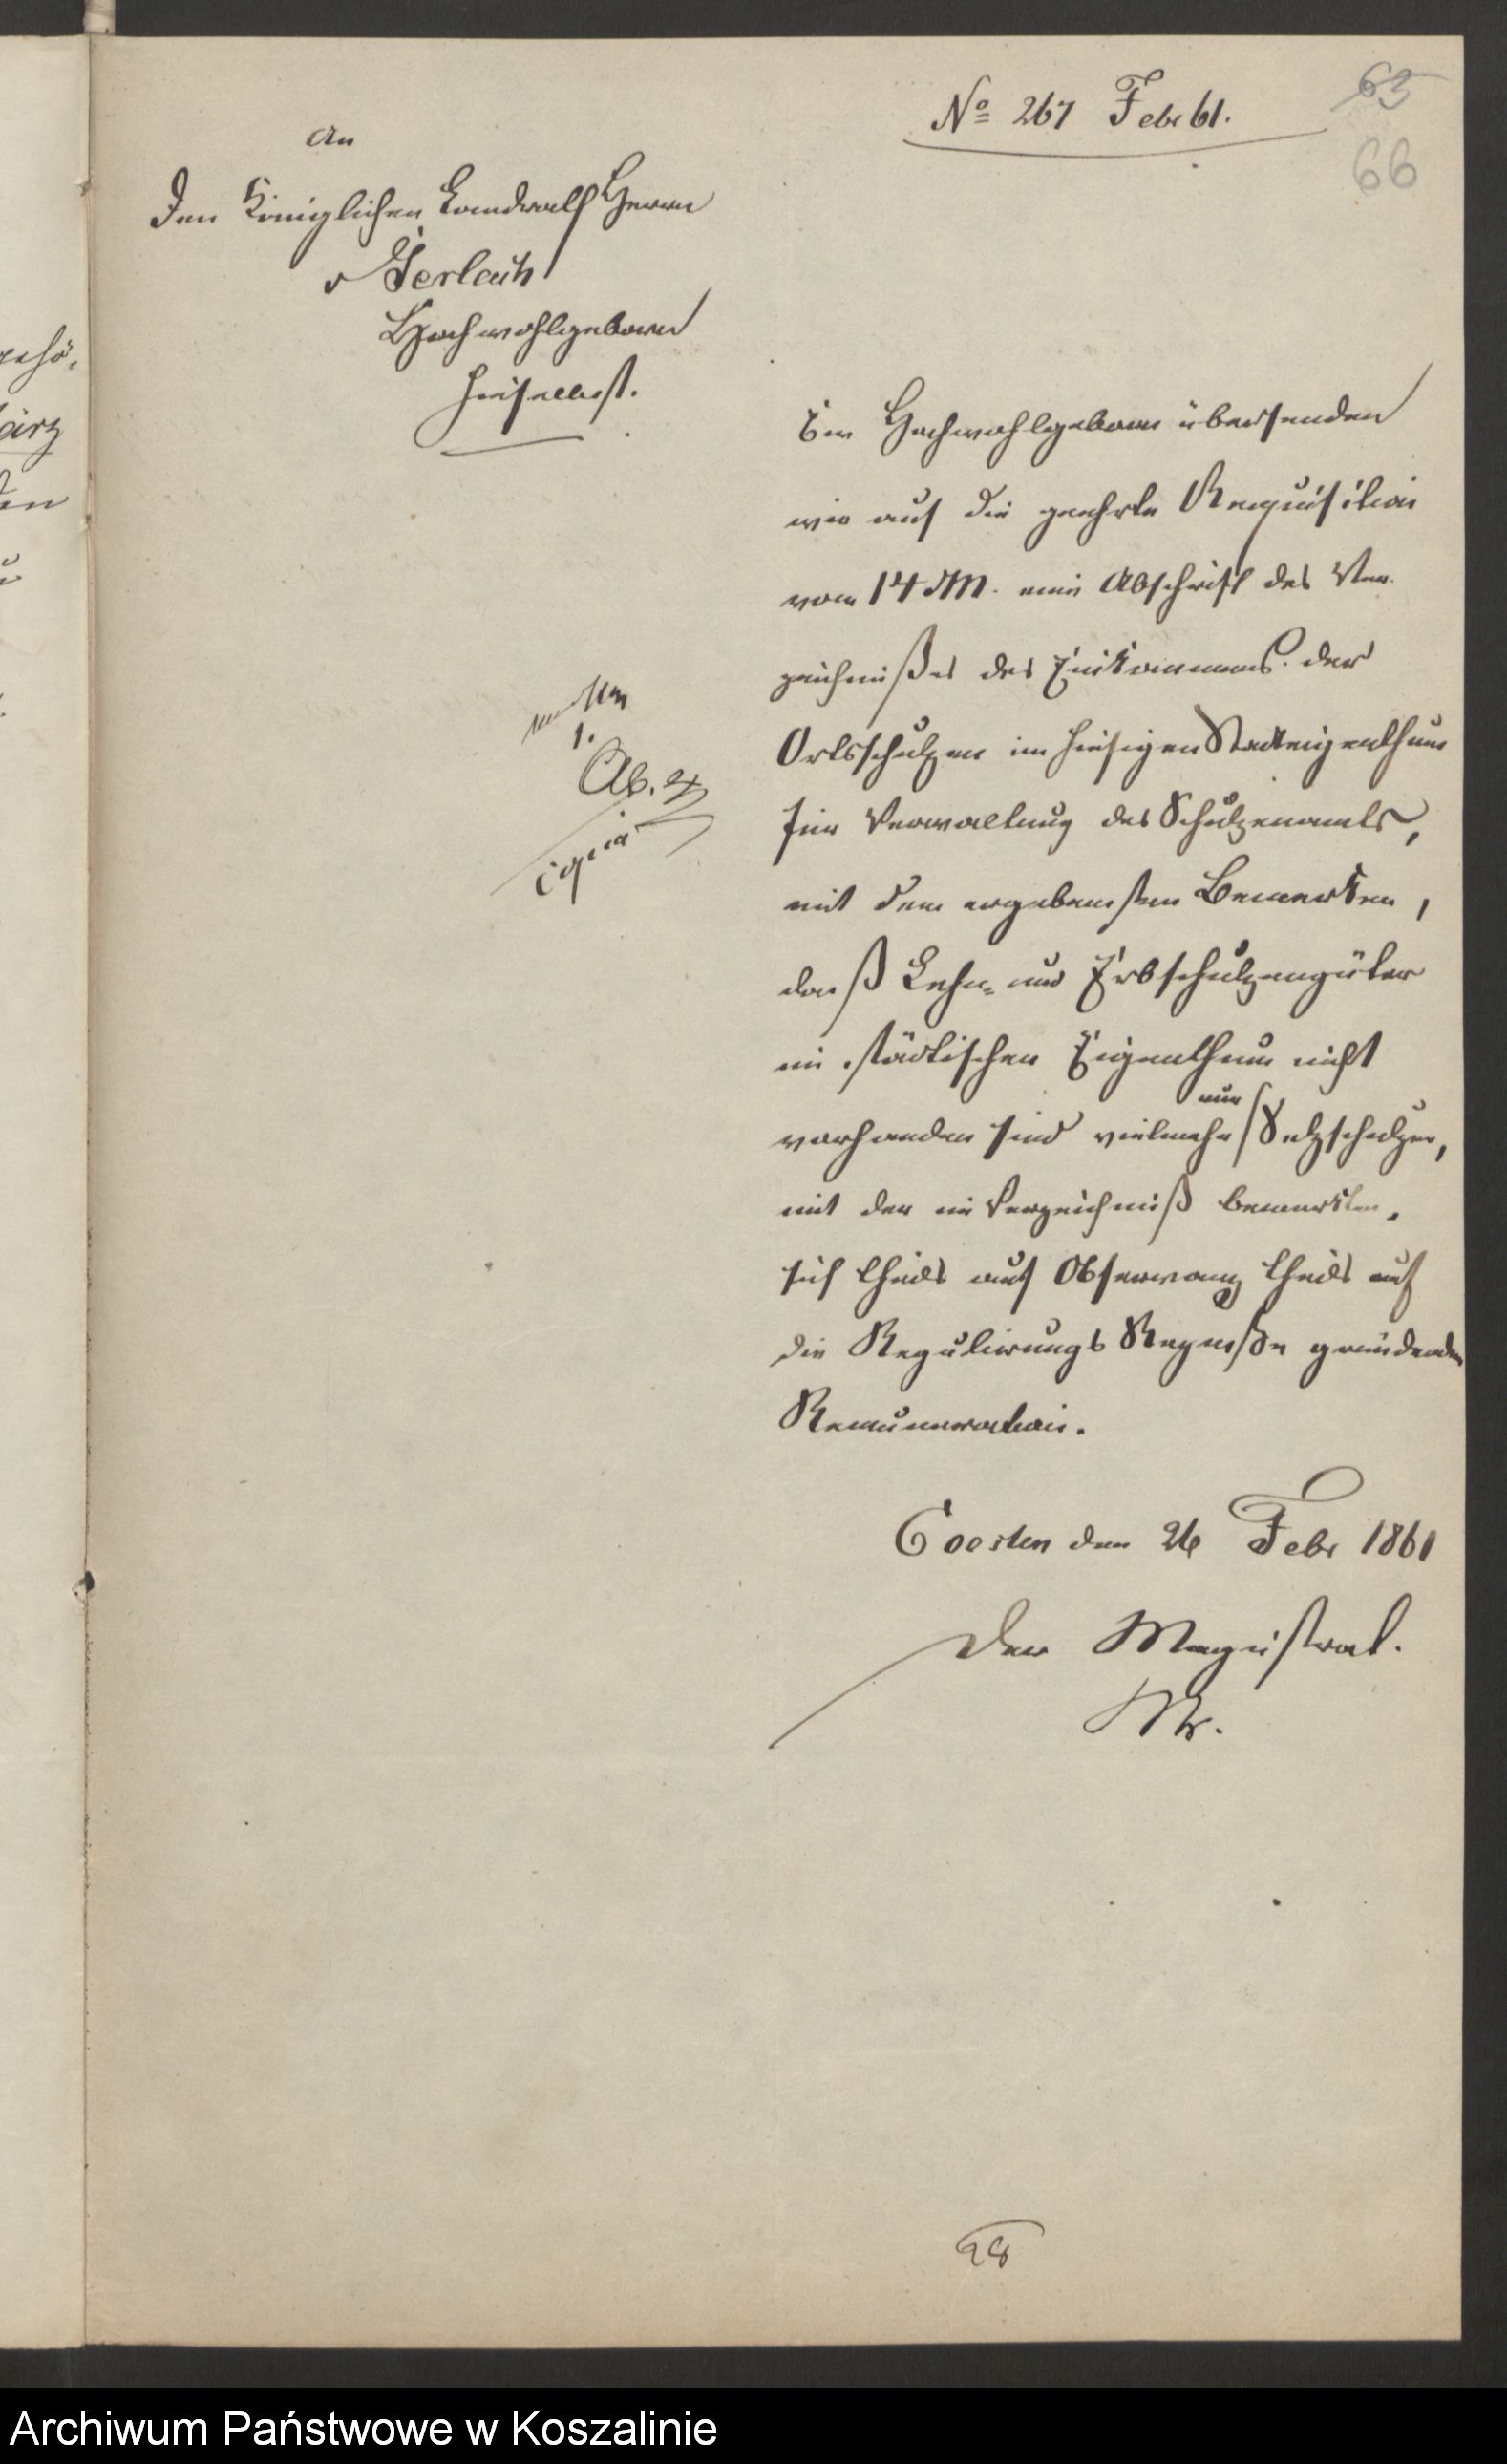 No 267 Febr 61.
63
66
An
Den Königlichen Landrath Herrn
v Gerlach
Hochwohlgeborn
hieselbst.
Ew Hochwohlgeborn übersenden
wir auf die geehrte Requisition
vom 14 d M. eine Abschrift des Ver-
zeichnißes des Einkommens der
Ortsschulzen im hiesigen Stadteigenthum
für Verwaltung des Schulzenamts,
mit dem ergebensten Bemerken,
daß Lehn- und Erbschulzengüter
im städtischen Eigenthum nicht
vorhanden sind vielmehr nur Setzschulzen,
mit der im Verzeichniß bemerkten,
sich theils auf Observanz theils auf
die Regulirungs Rezesse gründenden
Remuneration.
Coeslin den 26 Febr 1861
Der Magistrat.
1.
copia
28
gehö-
März
den
Archiwum Państwowe w Koszalinie